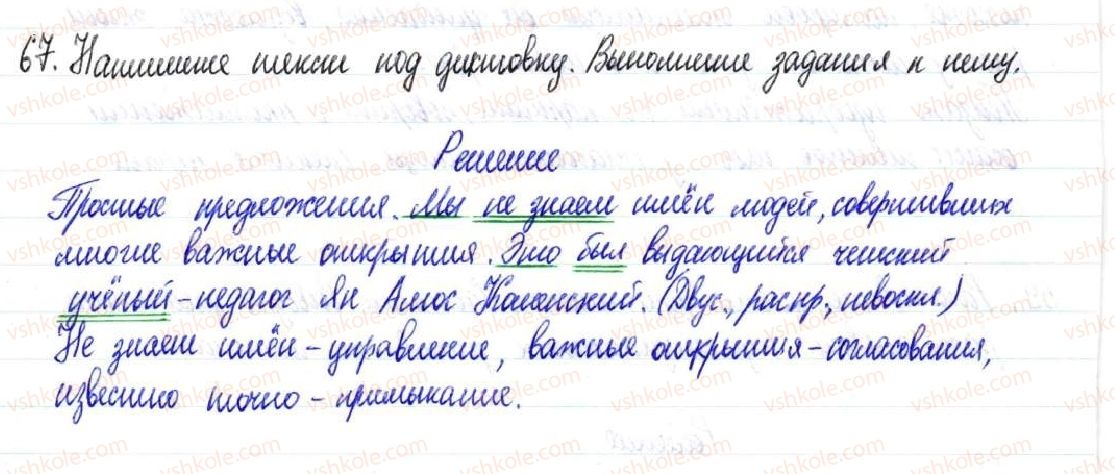 67. Напишите текст под диктовку. Выполните задания к нему.
Решение
Простые предложения. Мы не знаем имён людей, совершивших
многие важные открытия. Это был выдающийся чешский
учёный-педагог Ян Амос Каменский. (Двус., распр., невоскл.)
Не знаем имён - управление, важные открытия - согласования,
известно точно - примыкание.
vshkole.com